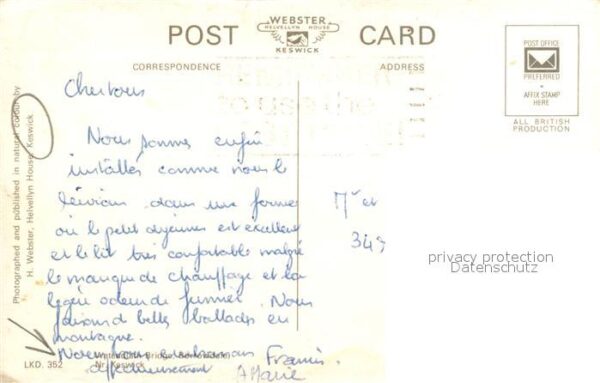 WEBSTER
HELVELLYN HOUSE
KESWICK
POST CARD
CORRESPONDENCE
ADDRESS
POST OFFICE
PREFERRED
AFFIX STAMP
HERE
ALL BRITISH
PRODUCTION
Photographed and published in natural colour by
H. Webster, Helvellyn House, Keswick
Chers tous
Nous sommes enfin
installés comme nous le
dans une ferme
où le petit déjeuner est excellent
et le lit très confortable malgré
le manque de chauffage et la
légère odeur de fumier. Nous
faisons de belles ballades en
montagne.
Nous vous embrassons
affectueusement
Francis
A Marie
Mr et
349
privacy protection
Datenschutz
LKD. 352
Bridge
Nr. Keswick